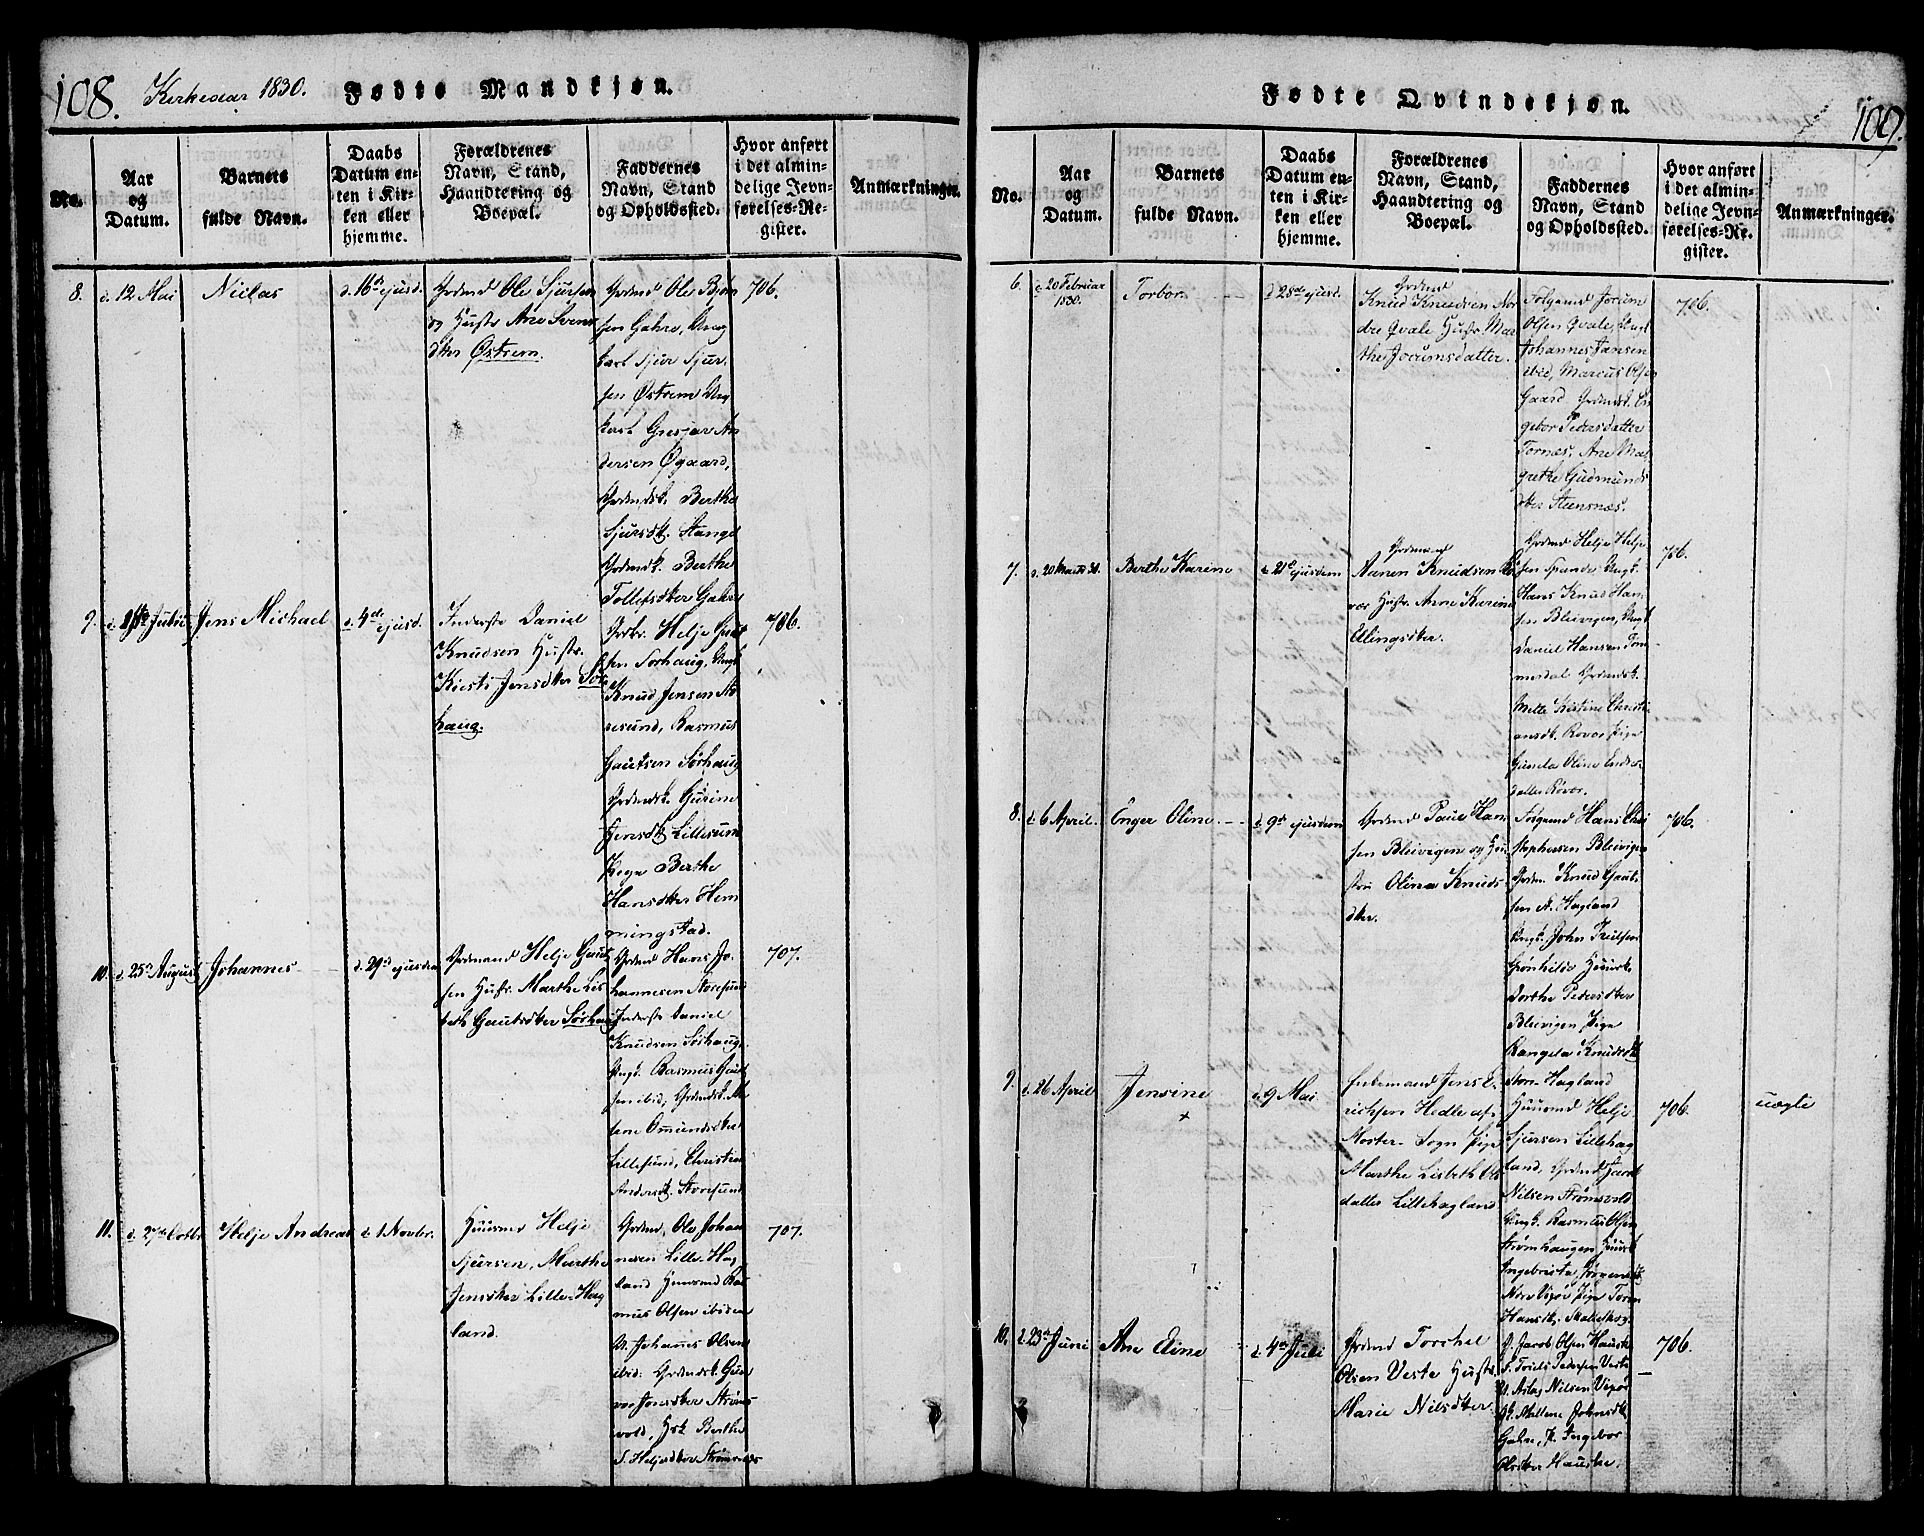 108. Kirkeaar 1830. Fødte Mandkjøn.
No.
Aar
og
Datum.
Barnets
fulde Navn.
Daabs
Datum en-
ten i Kir-
ken eller
hjemme.
Forældrenes
Navn, Stand,
Haandtering og
Boepæl.
Faddernes
Navn, Stand
og Opholdssted.
Hvor anført
i det almin-
delige Jevn-
førelses-Re-
gister.
Anmærkninger.
8.
d. 12 Mai
Niilas
d. 16de ejusd.
Grdmd Ole Sjursen
og Hustr Ane Svens
dtr Østrem.
Grdmd Ole Bjørn
sen Gahre, Ung
karl Sjur Sjur-
sen Østrem Ung
karl Gresjar An
dersen Øgaard,
Grdmdsk. Berthe
Sjursdt. Stange
Grdmdsk. Berthe
Tollefsdtter Gahre
706.
9.
Julii
Jens Michael
d. 4de ejusd.
Inderste Daniel
Knudsen Hustr.
Kirsti Jensdtter Sør
haug.
Helje Gaut
sen Sørhaug, Ungk
Knud Jensen Sto
resund, Rasmus
Gautsen Sørhaug
Grdmdsk. Gurine
Jensdt Lillesund
Pige Berthe
Hansdtter Hem
mingstad.
706.
10.
d. 25de August
Johannes
d. 29de ejusdem
Grdmand Helje Gaut
sen Hustr. Marthe Lis
beth Gautsdtter Sørhaug
Grdmd Hans Jo-
hannesen Storesund
Inderste Daniel
Knudsen Sørhaug
Ungk. Rasmus Gaut
sen ibid, Grdmdsk. Ma
lene Omundsdtter
Lillesund, Christine
Andersdt. Storesund
707.
11.
d. 27de Octbr
Helje Andreas
d. 1 Novbr.
Huusmd Helje
Sjursen, Marthe
Jensdtter Lille-Hag
land.
Grdmd, Ole Johan
nesen Lille-Hag
land Huusmd Ras
mus Olsen ibidem
U. Johannes Olsen
ibid. Grdmdsk. Gun
vor Jonsdtter Strøms
vold, Hsk Berthe
S. Heljesdtter Strømsnes
707.
Fødte Qvindekjøn.
109.
No.
Aar
og
Datum.
Barnets
fulde Navn.
Daabs
Datum en-
ten i Kir-
ken eller
hjemme.
Forældrenes
Navn, Stand,
Haandtering og
Boepæl.
Faddernes
Navn, Stand
og Opholdssted.
Hvor anført
i det almin-
delige Jevn-
førelses-Re-
gister.
Anmærkninger.
6.
d. 20 Februar
1830.
Torbor
d. 28de ejusd.
Grdmd
Knud Knudsen Nor
dre Qvale Hustr. Mar
the Jorumsdatter.
Følgemd Jorum
Olsen Qvale, Ungk
Johannes Jansen
ibid, Marcus Olsen
Gaard Grdmdsk. In
gebor Pedersdatter
Tornæs, Ane Mar
grethe Gudmunds
dtter Steensnæs.
706.
7.
d. 20 Marts 30.
Berthe Karine
d. 21de ejusdem
Grdmand
Aanen Knudsen Rø
vær Hustr. Anne Karine
Ellingsdtter.
Grdmd Helje Helje
sen Spande, Ungk.
Hans Knud Han
sen Bleivigen, Ungk
Daniel Hansen Tom
mesdal Grdmdsk.
Mette Kistine Christi
ansdt. Rovor Pige
Gunda Oline Ender
datter Røvor.
706.
8.
d. 6 April
Enger Oline
d. 9de ejusdem
Grdmd Paul Han
sen Bleivigen og Hu
stru Olina Knuds-
dtter.
Følgemd Hans Chri
stophersen Bleivigen
Grdm. Knud Gaut-
sen St. Hagland
Ungk. John Troelsen
Grønhilde Huusk.
Dorthe Pedersdtter
Bleivigen Pige
Rangela Knudsdt
Store-Hagland
706.
9.
d. 26 April
Jensine
+
d. 9 Mai
Enkemand Jens E-
richsen Hedle af
Moster-Sogn Pige
Marthe Lisbeth Ols
datter Lillehagland
Huusmd Helje
Sjursen Lillehag
land, Grdmd Jacob
Nilsen Strømsvold
Ungk. Rasmus Olsen
Strømhaugen Huusk
Ingebrigta Jørgensdt
Nore Vigør Pige Toren
Hansdt. Skaleskog.
706.
uægte
10.
d. 23de Juni
Ane Eline
d. 4de Juli
Grdmd Torchel
Olsen Veste Hustr
Marie Nilsdtter
G. Jacob Olsen Hauske
S. Troels Pedersen Veste
U. Aslag Nilsen Vigør
Gk. Mallene Johnsdt
Gahre, P. Ingebor
Olsdtter Hauske.
706.